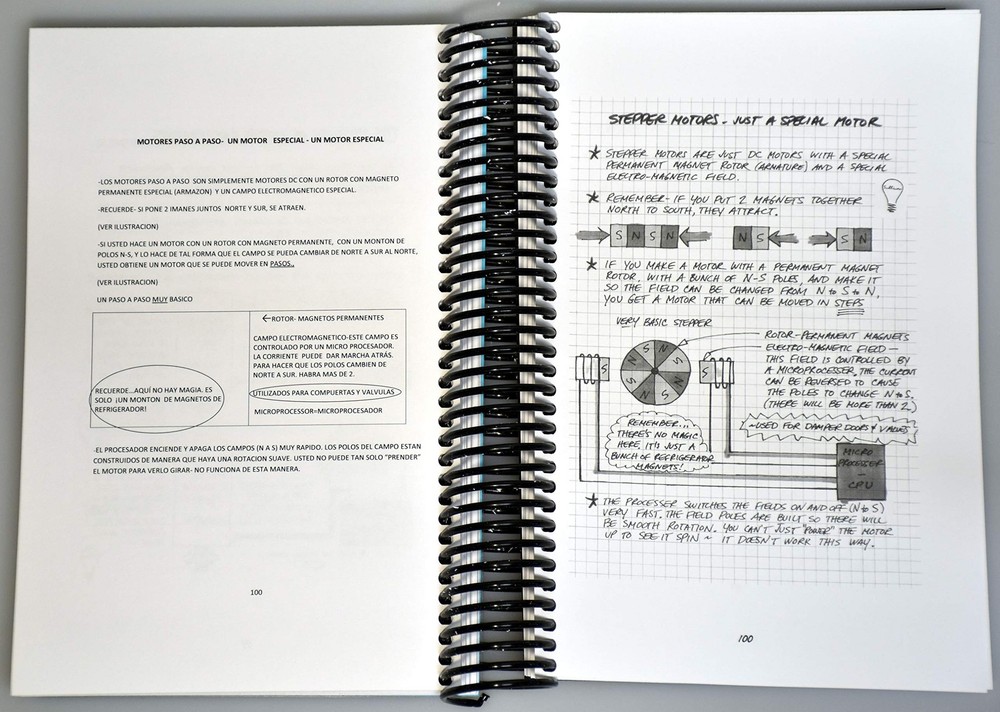 MOTORES PASO A PASO- UN MOTOR ESPECIAL - UN MOTOR ESPECIAL
-LOS MOTORES PASO A PASO SON SIMPLEMENTE MOTORES DC CON UN ROTOR CON MAGNETO
PERMANENTE ESPECIAL (ARMAZON) Y UN CAMPO ELECTROMAGNETICO ESPECIAL.
-RECUERDE- SI PONE 2 IMANES JUNTOS NORTE Y SUR, SE ATRAEN.
(VER ILUSTRACION)
-SI USTED HACE UN MOTOR CON UN ROTOR CON MAGNETO PERMANENTE, CON UN MONTON DE
POLOS N-S, Y LO HACE DE TAL FORMA QUE EL CAMPO SE PUEDA CAMBIAR DE NORTE A SUR AL NORTE,
USTED OBTIENE UN MOTOR QUE SE PUEDE MOVER EN PASOS..
(VER ILUSTRACION)
UN PASO A PASO MUY BASICO
←ROTOR- MAGNETOS PERMANENTES
CAMPO ELECTROMAGNETICO-ESTE CAMPO ES
CONTROLADO POR UN MICRO PROCESADOR.
LA CORRIENTE PUEDE DAR MARCHA ATRÁS.
PARA HACER QUE LOS POLOS CAMBIEN DE
NORTE A SUR. HABRA MAS DE 2.
RECUERDE...AQUÍ NO HAY MAGIA. ES
SOLO ¡UN MONTON DE MAGNETOS DE
REFRIGERADOR!
UTILIZADOS PARA COMPUERTAS Y VALVULAS
MICROPROCESSOR=MICROPROCESADOR
-EL PROCESADOR ENCIENDE Y APAGA LOS CAMPOS (N A S) MUY RAPIDO. LOS POLOS DEL CAMPO ESTAN
CONSTRUIDOS DE MANERA QUE HAYA UNA ROTACION SUAVE. USTED NO PUEDE TAN SOLO "PRENDER"
EL MOTOR PARA VERLO GIRAR- NO FUNCIONA DE ESTA MANERA.
100
STEPPER MOTORS - JUST A SPECIAL MOTOR
★ STEPPER MOTORS ARE JUST DC MOTORS WITH A SPECIAL
PERMANENT MAGNET ROTOR (ARMATURE) AND A SPECIAL
ELECTRO-MAGNETIC FIELD.
★ REMEMBER- IF YOU PUT 2 MAGNETS TOGETHER
NORTH TO SOUTH, THEY ATTRACT.
S N S N N S S N
★ IF YOU MAKE A MOTOR WITH A PERMANENT MAGNET
ROTOR, WITH A BUNCH OF N-S POLES, AND MAKE IT
SO THE FIELD CAN BE CHANGED FROM N to S to N,
YOU GET A MOTOR THAT CAN BE MOVED IN STEPS
VERY BASIC STEPPER
S N S N S N S N S S
ROTOR-PERMANENT MAGNETS
ELECTRO-MAGNETIC FIELD —
THIS FIELD IS CONTROLLED BY
A MICROPROCESSER, THE CURRENT
CAN BE REVERSED TO CAUSE
THE POLES TO CHANGE N to S.
(THERE WILL BE MORE THAN 2.)
~USED FOR DAMPER DOORS & VALVES
REMEMBER...
THERE'S NO MAGIC
HERE, IT'S JUST A
BUNCH OF REFRIGERATOR
MAGNETS!
MICRO
PROCESSER
-
CPU
★ THE PROCESSER SWITCHES THE FIELDS ON AND OFF (N to S)
VERY FAST. THE FIELD POLES ARE BUILT SO THERE WILL
BE SMOOTH ROTATION. YOU CAN'T JUST "POWER" THE MOTOR
UP TO SEE IT SPIN ~ IT DOESN'T WORK THIS WAY.
100